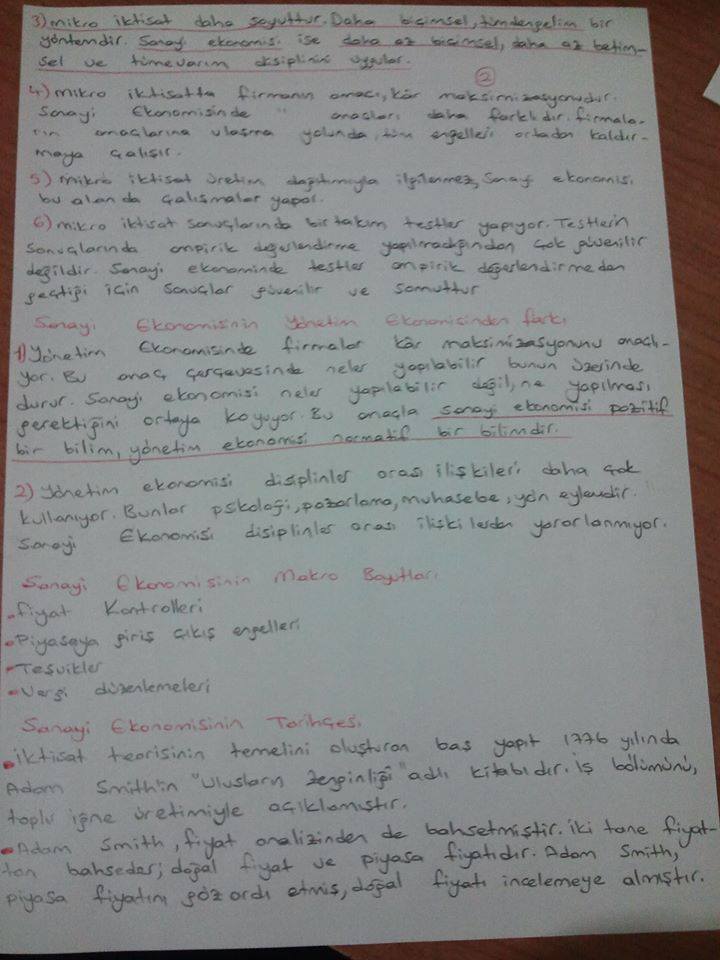 3) mikro iktisat daha soyuttur. Daha biçimsel, tümdengelim bir
yöntemdir. Sanayi ekonomisi ise daha az biçimsel, daha az betim-
sel ve tümevarım disiplinini uygular.
2
4) mikro iktisatta firmanın amacı, kâr maksimizasyonudur.
Sanayi Ekonomisinde " amaçları daha farklıdır. firmala-
rın amaçlarına ulaşma yolunda, tüm engelleri ortadan kaldır-
maya çalışır.
5) mikro iktisat üretim dağıtımıyla ilgilenmez, Sanayi ekonomisi
bu alanda çalışmalar yapar.
6) mikro iktisat sonuçlarında birtakım testler yapıyor. Testlerin
sonuçlarında ampirik değerlendirme yapılmadığından çok güvenilir
değildir. Sanayi ekonominde testler ampirik değerlendirmeden
geçtiği için sonuçlar güvenilir ve somuttur
Sanayi Ekonomisinin Yönetim Ekonomisinden farkı
1) Yönetim Ekonomisinde firmalar kâr maksimizasyonunu amaçlı-
yor. Bu amaç çerçevesinde neler yapılabilir bunun üzerinde
durur. Sanayi ekonomisi neler yapılabilir değil, ne yapılması
gerektiğini ortaya koyuyor. Bu amaçla sanayi ekonomisi pozitif
bir bilim, yönetim ekonomisi normatif bir bilimdir.
2) Yönetim ekonomisi disiplinler arası ilişkileri daha çok
kullanıyor. Bunlar pskoloji, pazarlama, muhasebe, yön eylemdir.
Sanayi Ekonomisi disiplinler arası ilişkilerden yararlanmıyor.
Sanayi Ekonomisinin Makro Boyutları
• fiyat Kontrolleri
• Piyasaya giriş çıkış engelleri
• Teşvikler
• Vergi düzenlemeleri
Sanayi Ekonomisinin Tarihçesi
• iktisat teorisinin temelini oluşturan baş yapıt 1776 yılında
Adam Smith'in "Ulusların Zenginliği" adlı kitabıdır. İş bölümünü,
toplu iğne üretimiyle açıklamıştır.
• Adam Smith, fiyat analizinden de bahsetmiştir. İki tane fiyat-
tan bahseder; doğal fiyat ve piyasa fiyatıdır. Adam Smith,
piyasa fiyatını göz ardı etmiş, doğal fiyatı incelemeye almıştır.